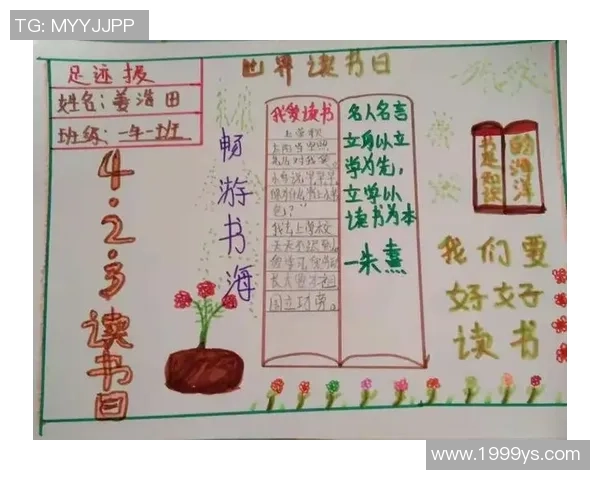 TG: MYYJJPP
世界读书日
足迹报
姓名:姜海田
班级:一年一班
4.2.3读书日
畅游书海
我爱读书
上学校
天天不迟到。
国立功劳。
名人名言
立身以立
学为先,
立学以
读书为本
—朱熹
书是知识
的海洋
我们要
好好
读书
www.1999ys.com